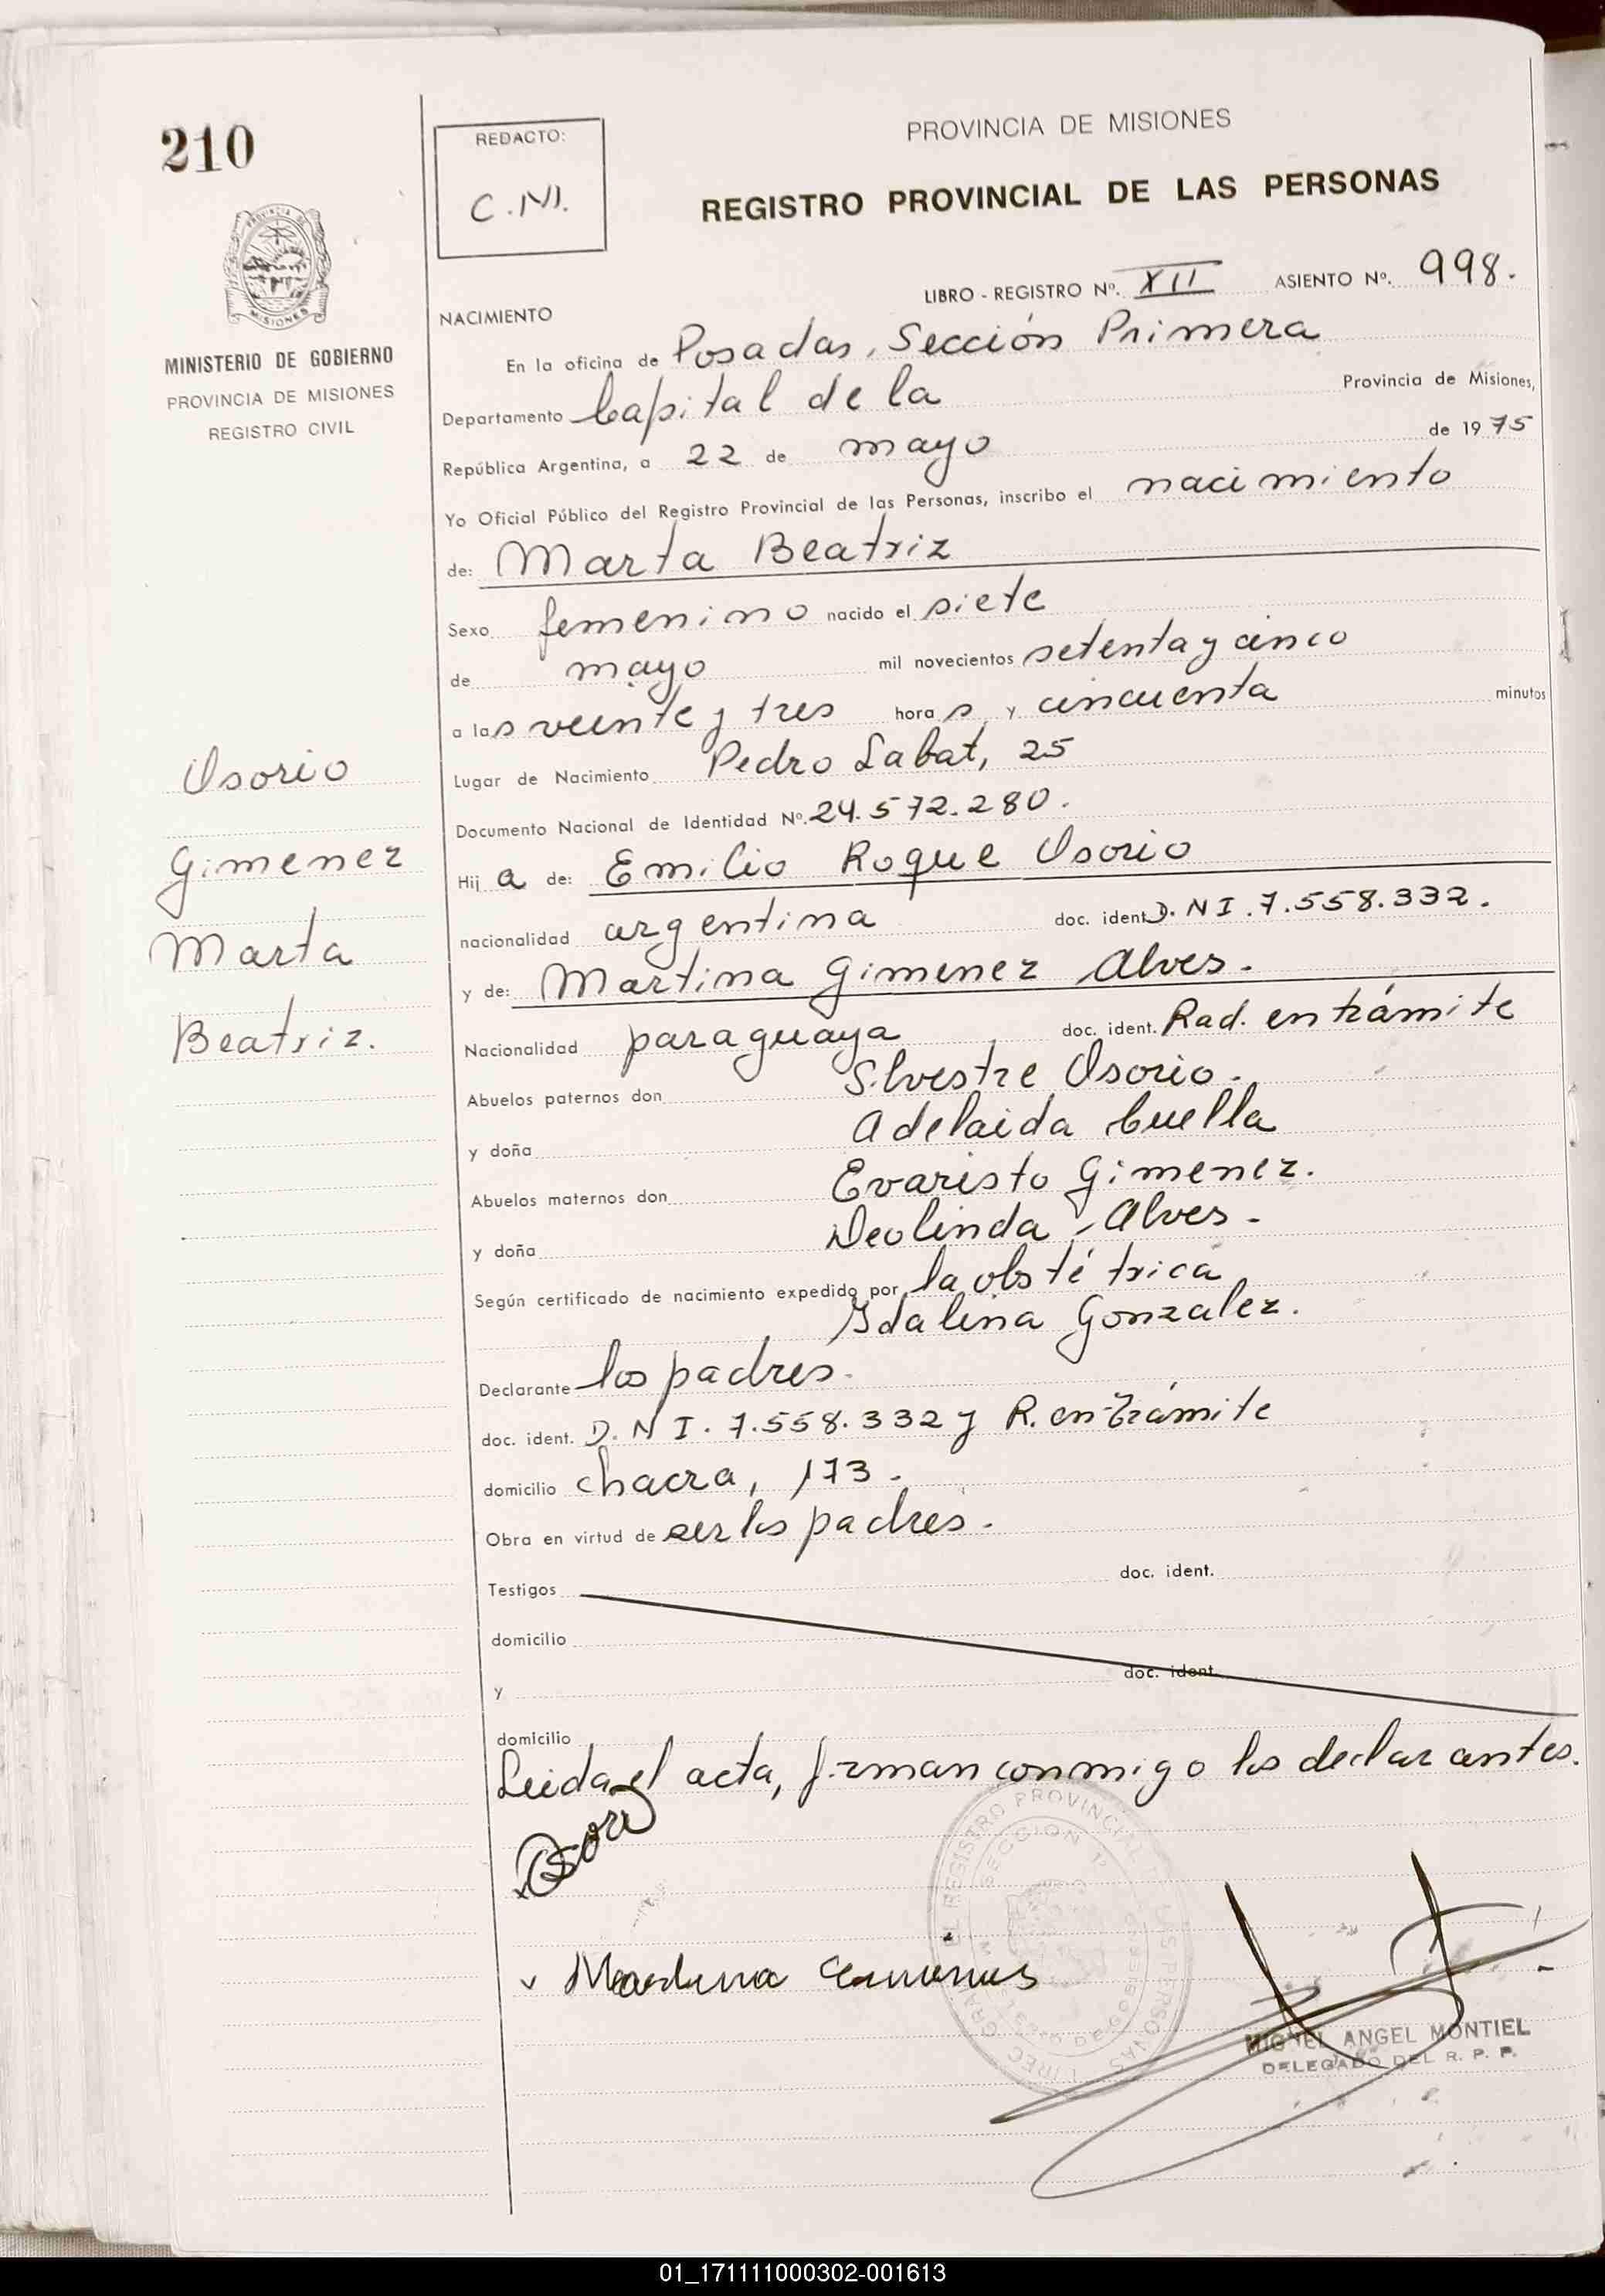 210
REDACTO:
C.M.
PROVINCIA DE MISIONES
REGISTRO PROVINCIAL DE LAS PERSONAS
LIBRO - REGISTRO Nº. XII ASIENTO Nº. 998.
PROVINCIA DE
MISIONES
MINISTERIO DE GOBIERNO
PROVINCIA DE MISIONES
REGISTRO CIVIL
NACIMIENTO
En la oficina de Posadas, Sección Primera
Departamento Capital de la Provincia de Misiones,
República Argentina, a 22 de mayo de 1975
Yo Oficial Público del Registro Provincial de las Personas, inscribo el nacimiento
de: Marta Beatriz
Sexo femenino nacido el siete
de mayo mil novecientos setenta y cinco
a las veinte y tres horas y cincuenta minutos
Lugar de Nacimiento Pedro Labat, 25
Documento Nacional de Identidad Nº. 24.572.280.
Hija de: Emilio Roque Osorio
nacionalidad argentina doc. ident. D.NI.7.558.332.
y de: Martina Gimenez Alves.
Nacionalidad paraguaya doc. ident. Rad. en trámite
Abuelos paternos don Silvestre Osorio.
y doña Adelaida Cuella
Abuelos maternos don Evaristo Gimenez.
y doña Deolinda Alves.
Según certificado de nacimiento expedido por la obstétrica
Idalina Gonzalez.
Declarante los padres.
doc. ident. D.NI.7.558.332 y R. en trámite
domicilio chacra, 173.
Obra en virtud de ser los padres.
Testigos doc. ident.
domicilio
y doc. ident.
domicilio
Leida el acta, firman conmigo los declarantes.
Osorio
Gimenez
Marta
Beatriz.
Martina
MIGUEL ANGEL MONTIEL
DELEGADO DEL R. P. P.
01_171111000302-001613